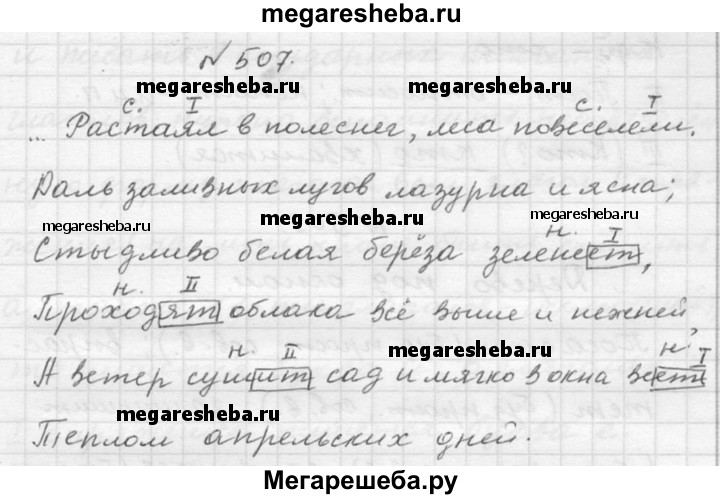 megaresheba.ru
№ 507.
megaresheba.ru megaresheba.ru
с. I с. I
... Растаял в поле снег, леса повеселели.
Даль заливных лугов лазурна и ясна;
megaresheba.ru megaresheba.ru megaresheba.ru
н. I
Стыдливо белая берёза зеленеет,
н. II
Проходят облака всё выше и нежней,
н. II megaresheba.ru н. I
А ветер сушит сад и мягко в окна веет
megaresheba.ru
Теплом апрельских дней.
Мегарешеба.ру